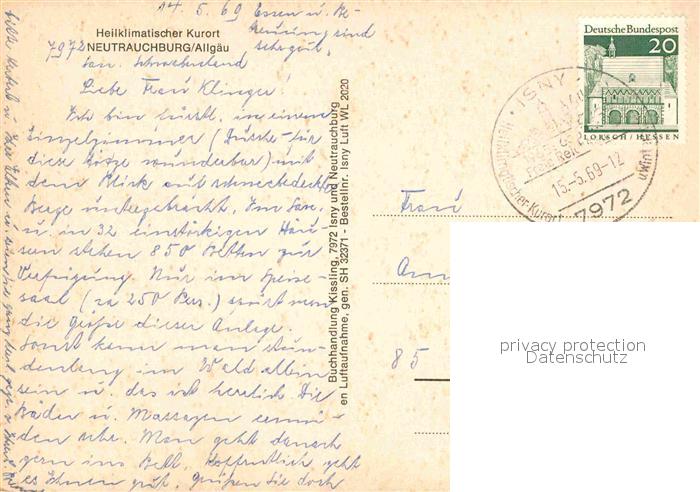 14. 5. 69 Essen u. Be-
treuung sind
sehr gut.
Heilklimatischer Kurort
7972 NEUTRAUCHBURG/Allgäu
San. Schwabenland
Liebe Frau Klinger!
Ich bin hier in einem
Einzelzimmer (Dusche für
diese Hitze wunderbar) mit
dem Blick auf schneebedeckte
Berge untergebracht. Im San.
u. in 32 einstöckigen Häu-
sern stehen 850 Betten zur
Verfügung. Nur im Speise-
saal (ca 250 Pers.) spürt man
die Größe dieser Anlage.
Sonst kann man stun-
denlang im Wald allein
sein u. das ist herrlich. Die
Bäder u. Massagen ermü-
den sehr. Man geht danach
gern ins Bett. Hoffentlich geht
es Ihnen gut. Grüßen Sie doch
bitte u. Ihre Eltern u.
Buchhandlung Kissling, 7972 Isny und Neutrauchburg
en Luftaufnahme, gen. SH 32371 - Bestellnr. Isny Luft WL 2020
Deutsche Bundespost
20
LORSCH / HESSEN
ISNY
15.-5.69-12
7972
Frau
Am
85
privacy protection
Datenschutz